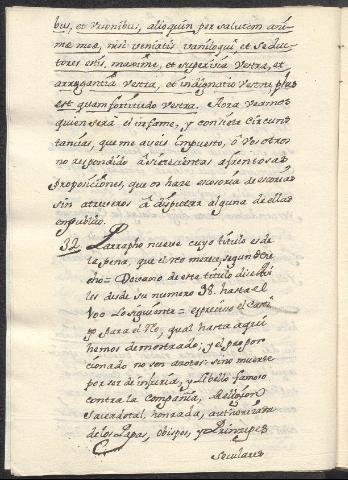 bus, et visionibus, alioquin per salutem ani-
me mea, nisi veniatis vaniloqui, et seduc-
tores estis, maxime, et superbia vestra, et
arrogantia vestra, et indignatio vestra plus
est quam fortitudo vestra. Aora veamos
quien será el infame, y con siete circuns-
tancias, que me aveis impuesto, ô vosotros
no respondido â setecientas afrentosas
proposiciones, que os haze
sin atreveros â disputar alguna de ellas
en publico.
32 Parrapho nueve cuyo titulo es de
la pena, que el reo merece, segun dere-
cho = Do vario de este titulo discelpi-
les desde su numero 38. hasta el
100 lo siguiente = es preciso el casti-
go para el Reo, qual hasta aqui
hemos demostrado; y el propor-
cionado no son azotes: sino muerte
por ser de injuria, y libello famoso
contra la Compañia,
Sacerdotal, honrada, authorizada
de los Papas, Obispos, y Principes
Seculares